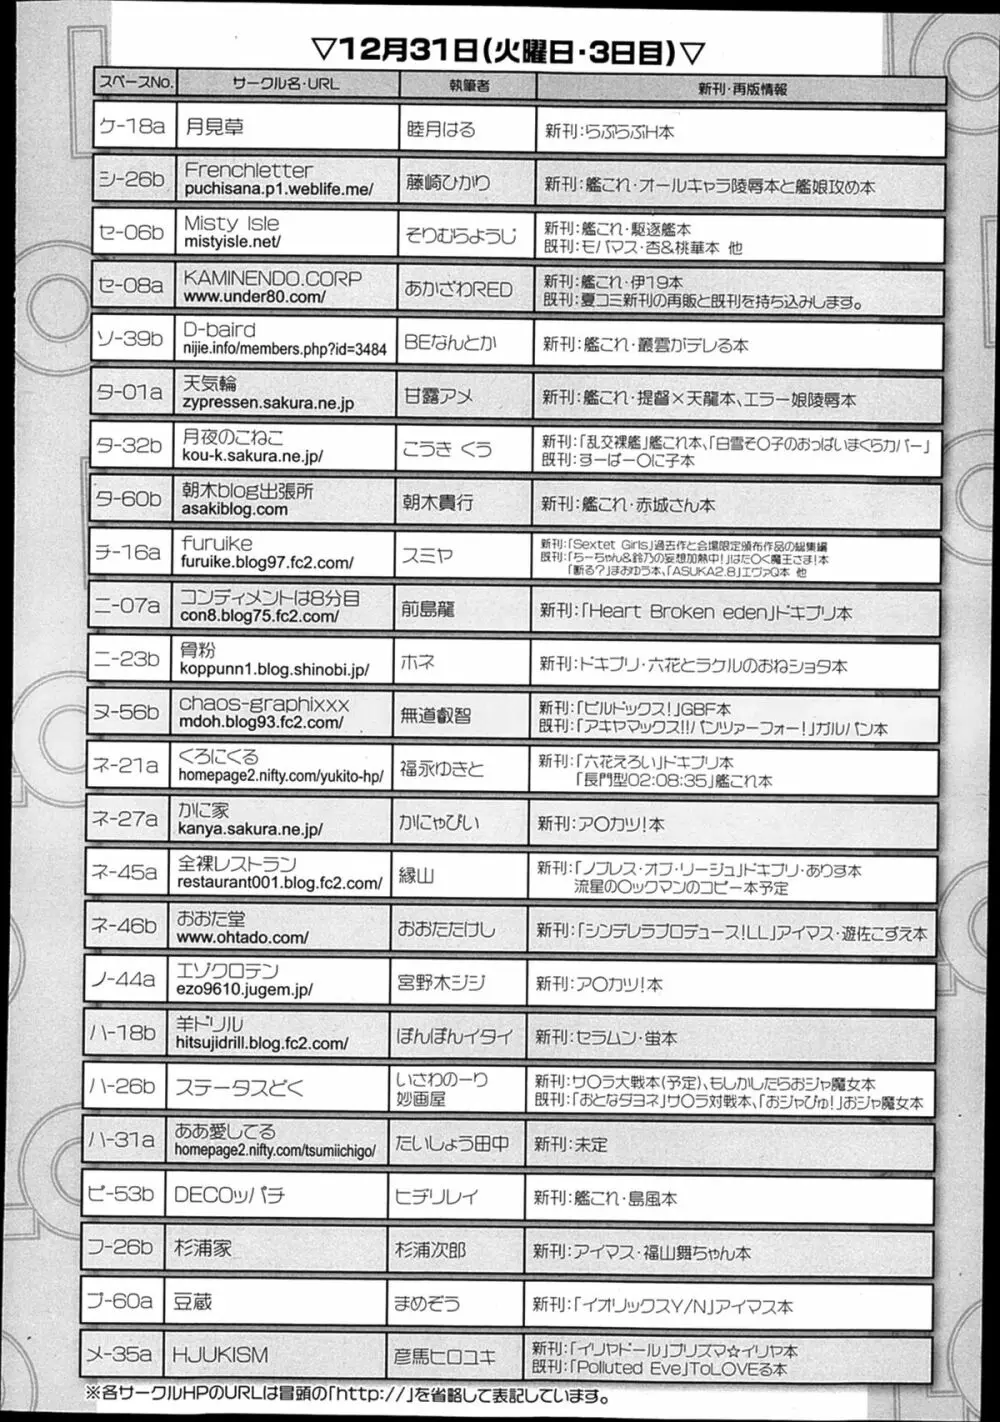 ▽12月31日(火曜日・3日目)▽
スペースNo. サークル名・URL 執筆者 新刊・再版情報
ケ-18a 月見草 睦月はる 新刊:らぶらぶH本
シ-26b Frenchletter puchisana.p1.weblife.me/ 藤崎ひかり 新刊:艦これ・オールキャラ陵辱本と艦娘攻め本
セ-06b Misty Isle mistyisle.net/ そりむらようじ 新刊:艦これ・駆逐艦本
既刊:モバマス・杏&桃華本 他
セ-08a KAMINENDO.CORP www.under80.com/ あかざわRED 新刊:艦これ・伊19本
既刊:夏コミ新刊の再販と既刊を持ち込みします。
ソ-39b D-baird nijie.info/members.php?id=3484 BEなんとか 新刊:艦これ・叢雲がデレる本
タ-01a 天気輪 zypressen.sakura.ne.jp 甘露アメ 新刊:艦これ・提督×天龍本、エラー娘陵辱本
タ-32b 月夜のこねこ kou-k.sakura.ne.jp/ こうき くう 新刊:「乱交裸艦」艦これ本、「白雪そ〇子のおっぱいまくらカバー」
既刊:すーぱー〇に子本
タ-60b 朝木blog出張所 asakiblog.com 朝木貴行 新刊:艦これ・赤城さん本
チ-16a furuike furuike.blog97.fc2.com/ スミヤ 新刊:「Sextet Girls」過去作と会場限定頒布作品の総集編
既刊:「ちーちゃん&鈴乃の妄想加熱中!」はた〇く魔王さま!本
「断る?」まおゆう本、「ASUKA2.8」エヴァQ本 他
ニ-07a コンディメントは8分目 con8.blog75.fc2.com/ 前島龍 新刊:「Heart Broken eden」ドキプリ本
ニ-23b 骨粉 koppunn1.blog.shinobi.jp/ ホネ 新刊:ドキプリ・六花とラケルのおねショタ本
ヌ-56b chaos-graphixxx mdoh.blog93.fc2.com/ 無道叡智 新刊:「ビルドックス!」GBF本
既刊:「アキヤマックス!!パンツァーフォー!」ガルパン本
ネ-21a くろにくる homepage2.nifty.com/yukito-hp/ 福永ゆきと 新刊:「六花えろい」ドキプリ本
「長門型02:08:35」艦これ本
ネ-27a かに家 kanya.sakura.ne.jp/ かにゃぴぃ 新刊:ア〇カツ!本
ネ-45a 全裸レストラン restaurant001.blog.fc2.com/ 縁山 新刊:「ノブレス・オブ・リージュ」ドキプリ・ありす本
流星の〇ックマンのコピー本予定
ネ-46b おおた堂 www.ohtado.com/ おおたたけし 新刊:「シンデレラプロデュース!LL」アイマス・遊佐こずえ本
ノ-44a エゾクロテン ezo9610.jugem.jp/ 宮野木ジジ 新刊:ア〇カツ!本
ハ-18b 羊ドリル hitsujidrill.blog.fc2.com/ ぽんぽんイタイ 新刊:セラムン・蛍本
ハ-26b ステータスどく いさわのーり 妙画屋 新刊:サ〇ラ大戦本(予定)、もしかしたらおジャ魔女本
既刊:「おとなダヨネ」サ〇ラ対戦本、「おジャぴゅ!」おジャ魔女本
ハ-31a ああ愛してる homepage2.nifty.com/tsumiichigo/ たいしょう田中 新刊:未定
ピ-53b DECOッパチ ヒヂリレイ 新刊:艦これ・島風本
フ-26b 杉浦家 杉浦次郎 新刊:アイマス・福山舞ちゃん本
プ-60a 豆蔵 まめぞう 新刊:「イオリックスY/N」アイマス本
メ-35a HJUKISM 彦馬ヒロユキ 新刊:「イリヤドール」プリズマ☆イリヤ本
既刊:「Polluted Eve」ToLOVEる本
※各サークルHPのURLは冒頭の「http://」を省略して表記しています。